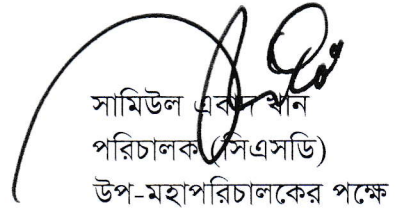 সামিউল এবাদ খান
পরিচালক (সিএসডি)
উপ-মহাপরিচালকের পক্ষে